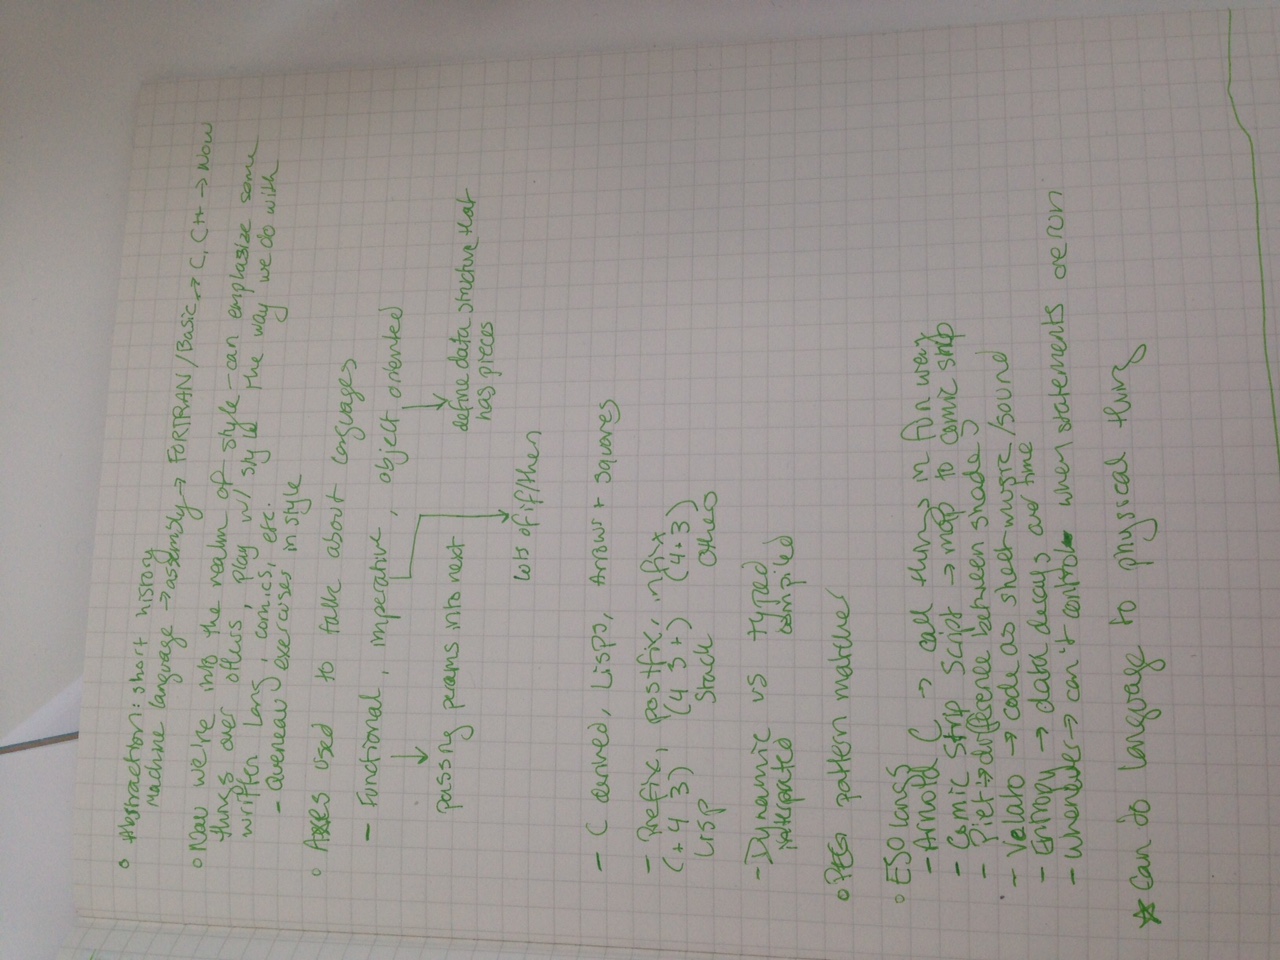 o Abstraction: short history
Machine language → assembly → FORTRAN / Basic → C, C++ → Now
o Now we're into the realm of style - can emphasize some
things over others, play w/ style the way we do with
written lang, comics, etc.
- Queneau exercises in style
o Axes used to talk about languages
- Functional, imperative, object oriented
passing params into next
define data structure that
has pieces
lots of if/then
- C derived, Lisps, Arrows + squares
- Prefix, postfix, infix
(+ 4 3) (4 3 +) (4+3)
Lisp Stack Others
- Dynamic vs typed
interpated compiled
o PEG pattern matcher
o ESO langs
- Arnold C → call things in fun way
- Comic Strip Script → map to comic strip
- Piet → difference between shades
- Velato → code as sheet music / sound
- Entropy → data decays over time
- Whenever → can't control when statements are run
☆ Can do language to physical thing